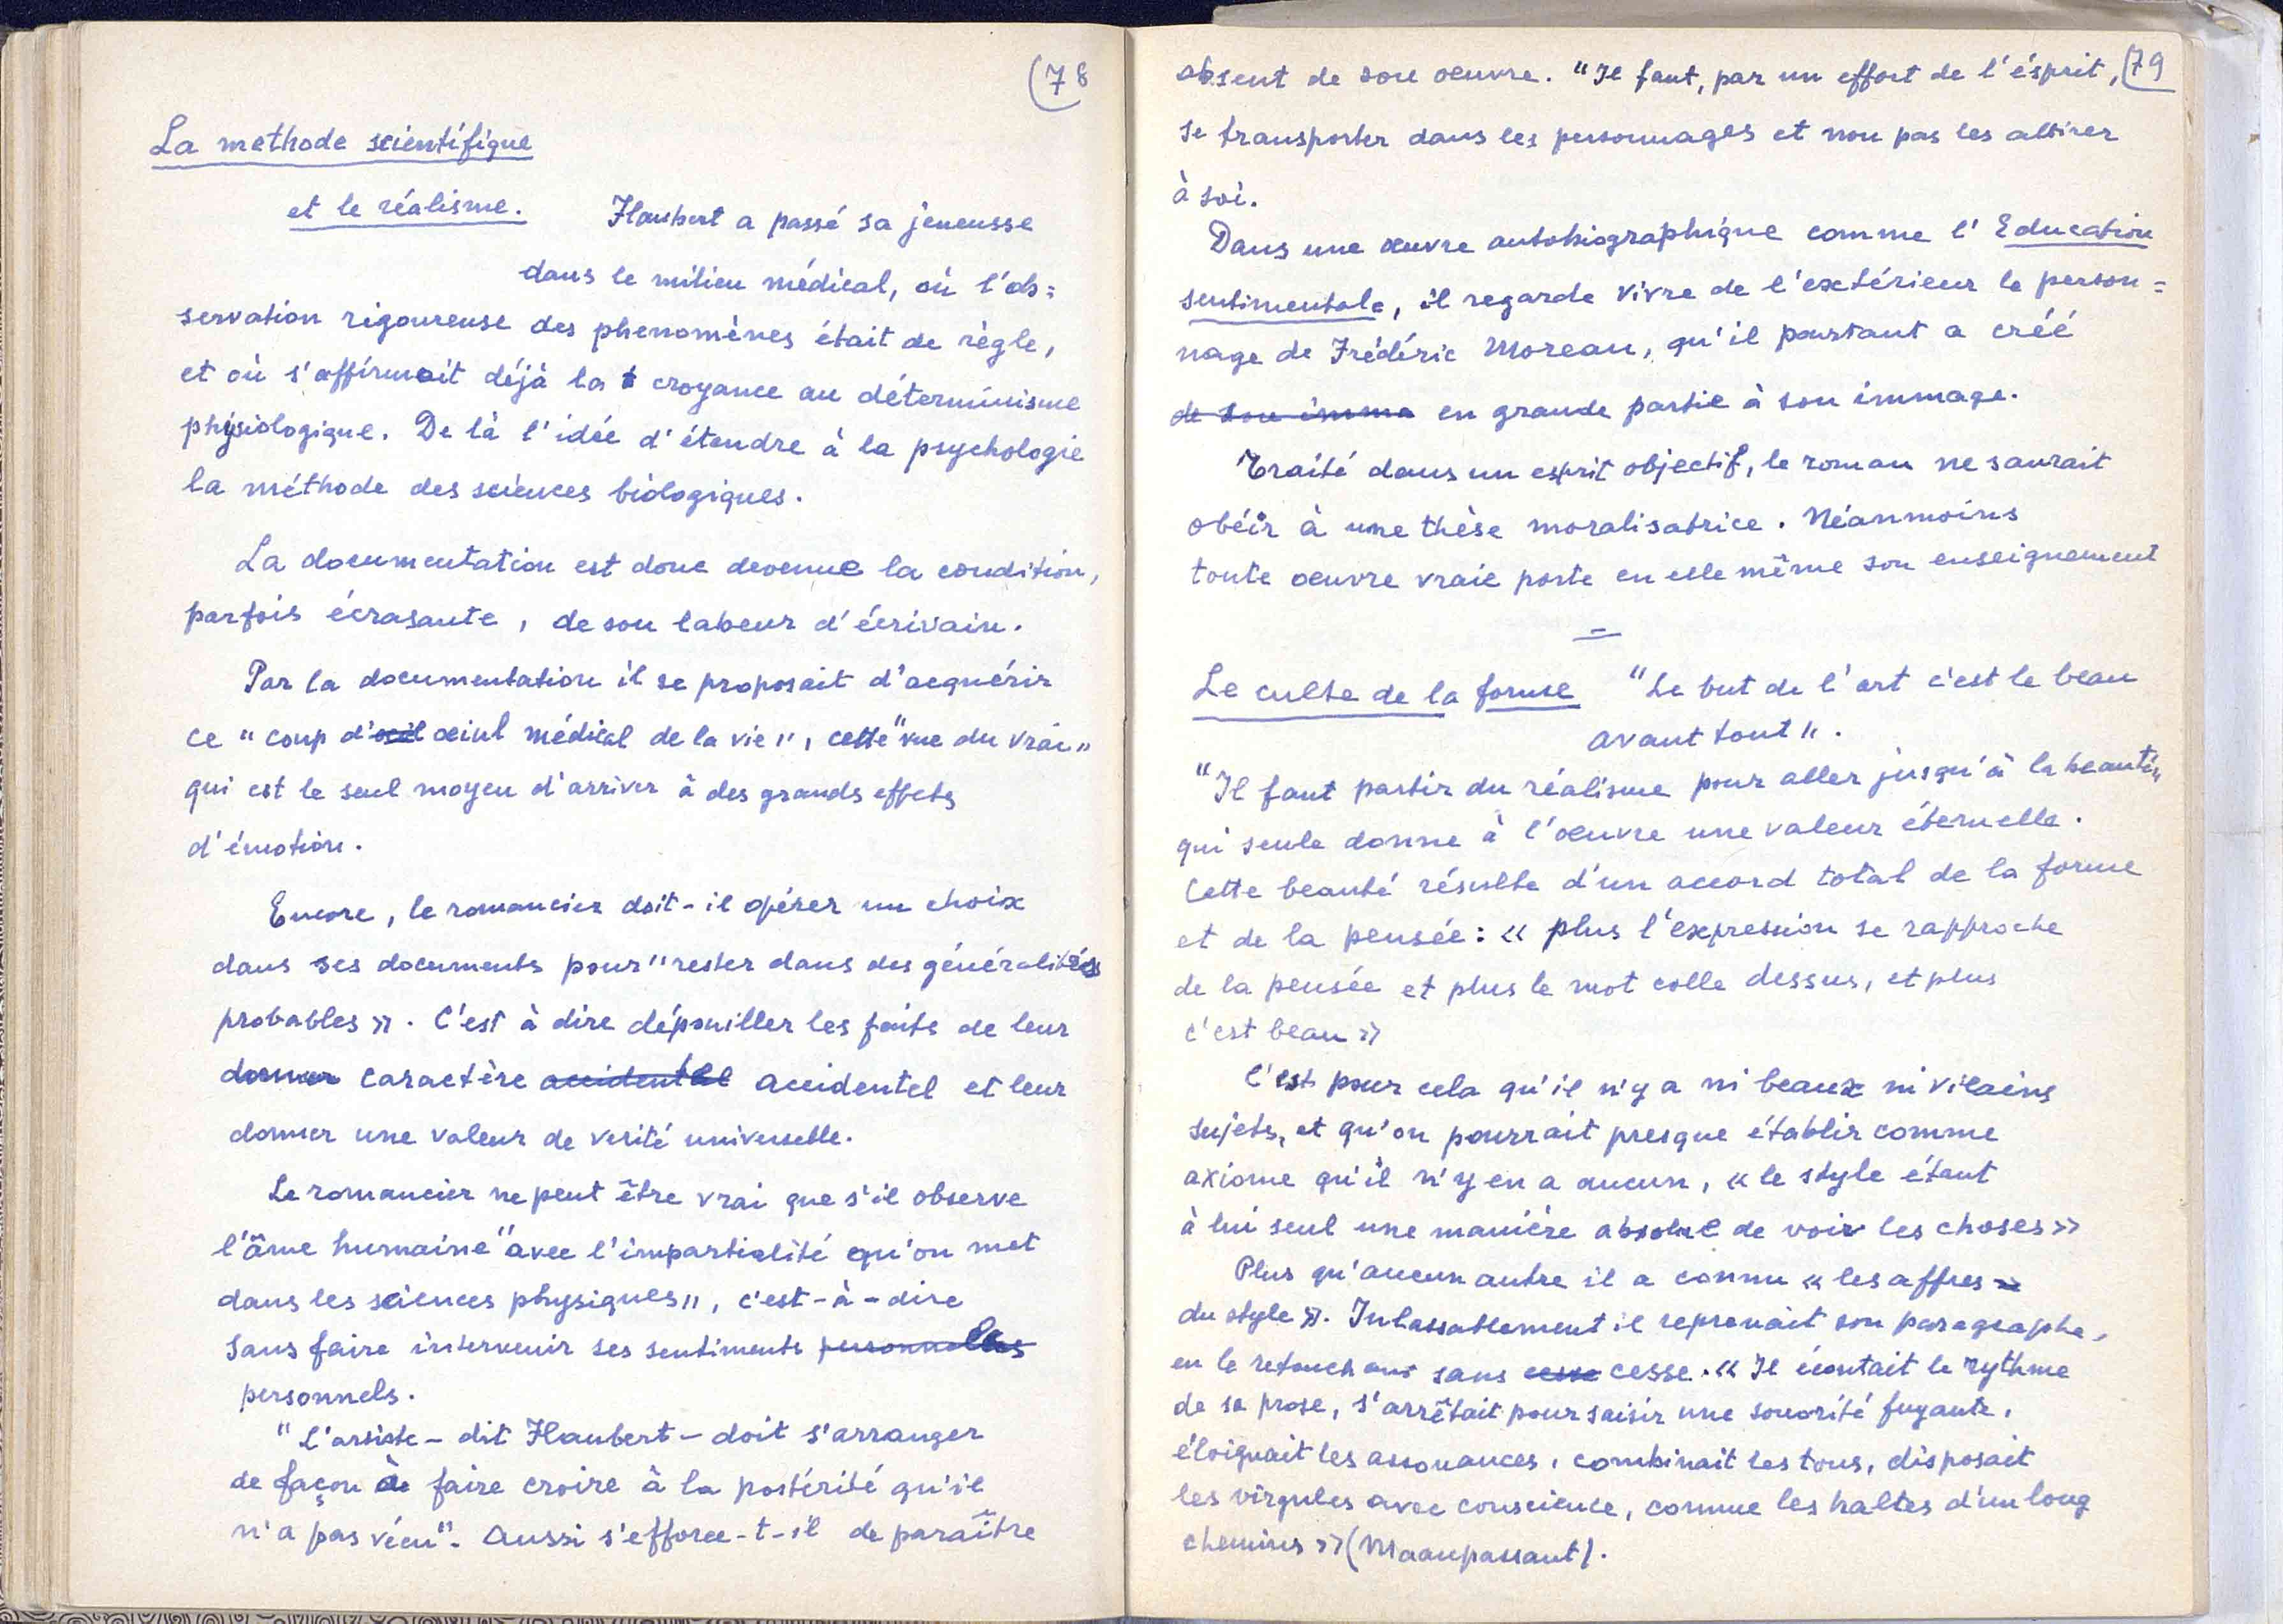 (78
La methode scientifique
et le réalisme. Flaubert a passé sa jeneusse
dans le milieu médical, où l'ob=
servation rigoureuse des phenomènes était de règle,
et où s'affirmait déjà la croyance au déterminisme
physiologique. De là l'idée d'étendre à la psychologie
la méthode des sciences biologiques.
La documentation est donc devenue la condition,
parfois écrasante, de son labeur d'écrivain.
Par la documentation il se proposait d'acquérir
ce "coup d'oeil oeiul médical de la vie", cette "vue du vrai"
qui est le seul moyen d'arriver à des grands effets
d'émotion.
Encore, le romancier doit-il opérer un choix
dans ses documents pour "rester dans des généralités
probables». C'est à dire dépouiller les faits de leur
donner caractère accidental accidentel et leur
donner une valeur de verité universelle.
Le romancier ne peut être vrai que s'il observe
l'âme humaine "avec l'impartialité qu'on met
dans les sciences physiques", c'est-à-dire
sans faire intervenir ses sentiments personnelles
personnels.
"L'artiste – dit Flaubert – doit s'arranger
de façon à faire croire à la postérité qu'il
n'a pas vécu". Aussi s'efforce-t-il de paraître
(79
absent de son oeuvre. "Il faut, par un effort de l'ésprit,
se transporter dans les personnages et non pas les attirer
à soi.
Dans une œuvre autobiographique comme l'Education
sentimentale, il regarde vivre de l'extérieur le person=
nage de Frédéric Moreau, qu'il pourtant a créé
de son imma en grande partie à son immage.
Traité dans un esprit objectif, le roman ne saurait
obéir à une thèse moralisatrice. Néanmoins
toute oeuvre vraie porte en elle même son enseignement
Le culte de la forme "Le but de l'art c'est le beau
avant tout".
"Il faut partir du réalisme pour aller jusqu'à la beauté"
qui seule donne à l'oeuvre une valeur éternelle.
Cette beauté résulte d'un accord total de la forme
et de la pensée: « plus l'expression se rapproche
de la pensée et plus le mot colle dessus, et plus
c'est beau»
C'est pour cela qu'il n'y a ni beaux ni vilains
sujets, et qu'on pourrait presque établir comme
axiome qu'il n'y en a aucun, « le style étant
à lui seul une manière absolue de voir les choses»
Plus qu'aucun autre il a connu « les affres »
du style». Inlassablement il reprenait son paragraphe,
en le retouchant sans cesse cesse. « Il écoutait le rythme
de sa prose, s'arrêtait pour saisir une sonorité fuyante,
éloignait les assonances, combinait les tons, disposait
les virgules avec conscience, comme les haltes d'un long
chemins » (Maaupassant).